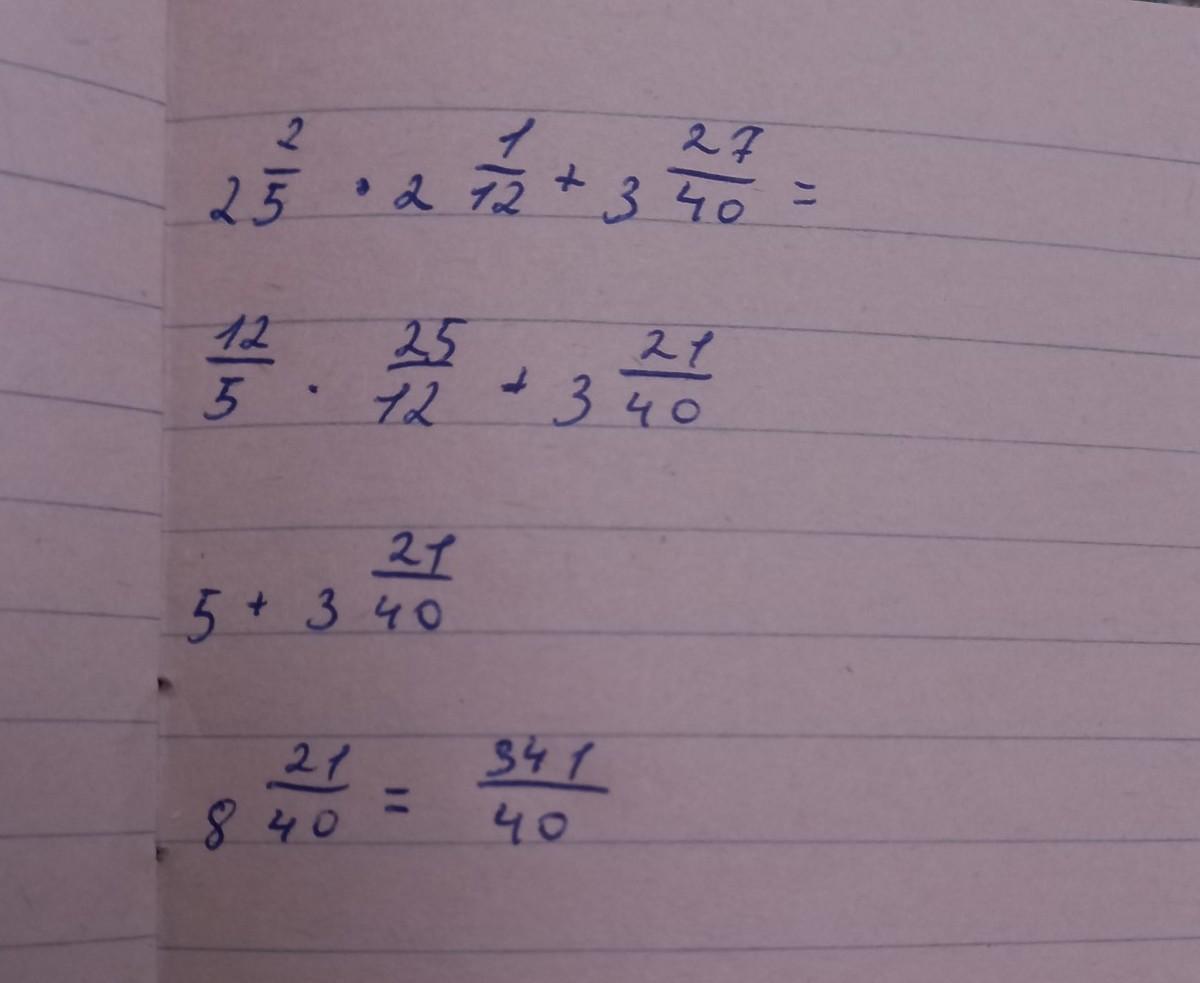 2 2/5 · 2 1/12 + 3 27/40 =
12/5 · 25/12 + 3 21/40
5 + 3 21/40
8 21/40 = 341/40